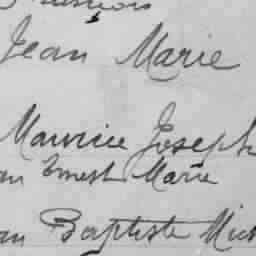 Jean Marie
Maurice Joseph
Ernest Marie
Baptiste